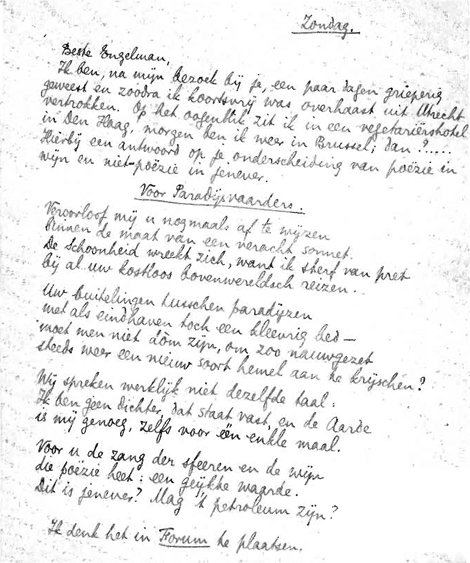 Zondag.
Beste Engelman,
Ik ben, na mijn bezoek bij je, een paar dagen grieperig
geweest en zoodra ik koortsvrij was overhaast uit Utrecht
vertrokken. Op het oogenblik zit ik in een vegetariërshotel
in Den Haag, morgen ben ik weer in Brussel; dan?.....
Hierbij een antwoord op je onderscheiding van poëzie in
wijn en niet-poëzie in jenever.
Voor Paradijsvaarders.
Veroorloof mij u nogmaals af te wijzen
binnen de maat van een veracht sonnet.
De Schoonheid wreekt zich, want ik sterf van pret
bij al uw kostloos bovenwereldsch reizen...
Uw buitelingen tusschen paradijzen
met als eindhaven toch een kleevrig bed —
moet men niet dòm zijn, om zoo nauwgezet
steeds weer een nieuw soort hemel aan te krijschen?
Wij spreken werklijk niet dezelfde taal:
Ik ben geen dichter, dat staat vast, en de Aarde
is mij genoeg, zelfs voor één enkle maal.
Voor u de zang der sfeeren en de wijn
die poëzie heet: een geijkte waarde.
Dit is jenever? Mag 't petroleum zijn?
Ik denk het in Forum te plaatsen.